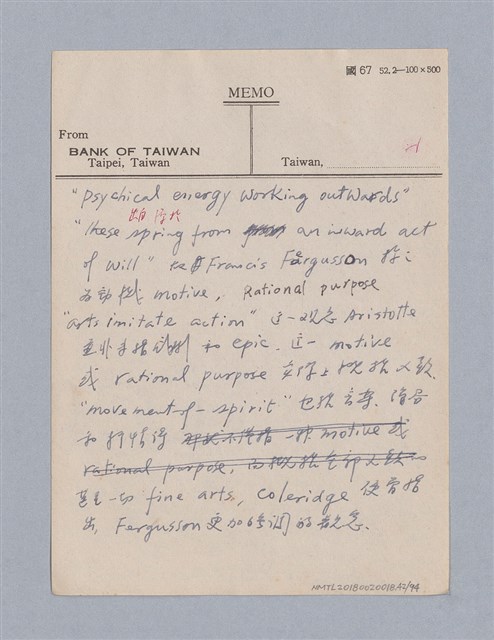 國 67 52.2—100×500
MEMO
From
BANK OF TAIWAN
Taipei, Taiwan
Taiwan,
"psychical energy working outwards"
"these spring from an inward act
of will" Francis Fergusson 稱之
為動機 motive, Rational purpose
"arts imitate action" 這一觀念 Aristotle
並非專指戲劇和 epic. 這一 motive
或 rational purpose 實際上概括人數
"movement-of-spirit" 包括音樂、
和抒情詩 motive 或
rational purpose,
甚至一切 fine arts, Coleridge 便曾指
出, Fergusson 更加強調的觀念、
NMTL20180020018.42/94